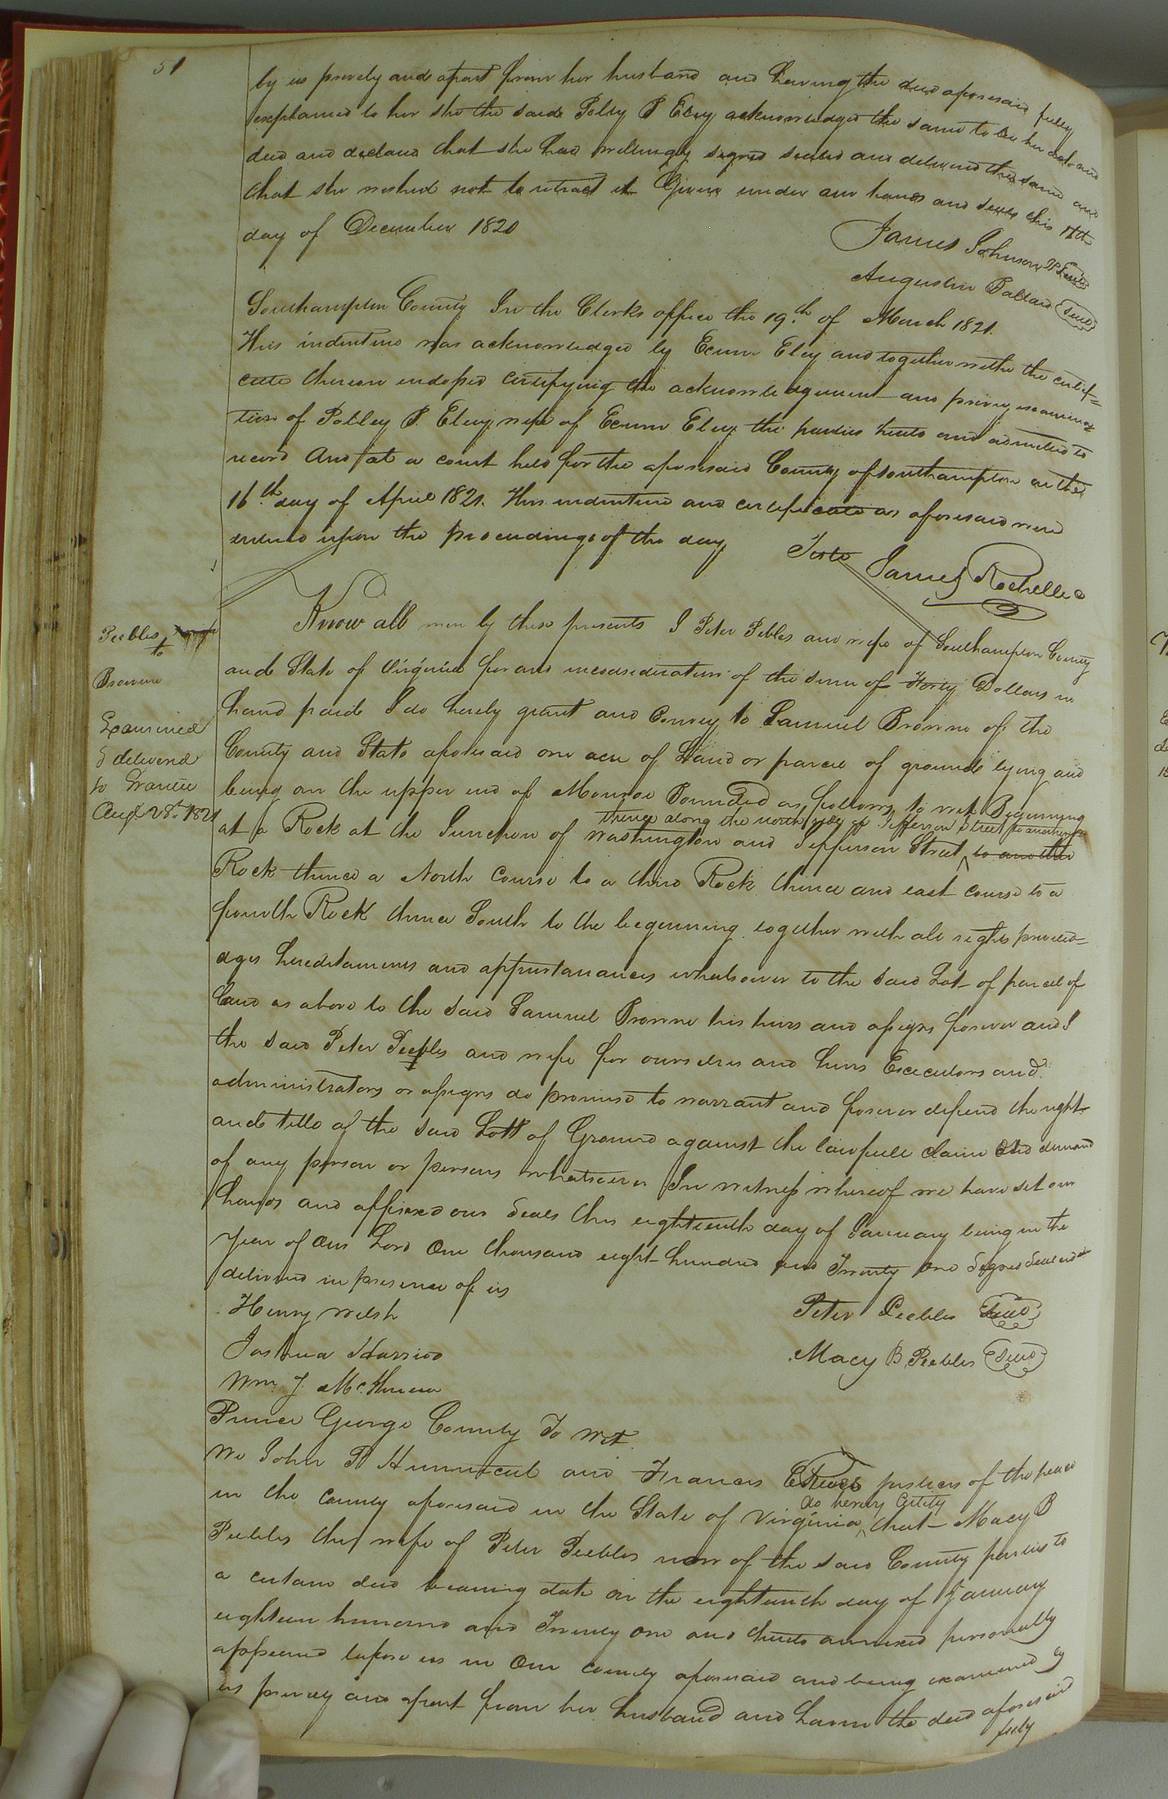 51
by us privily and apart from her husband and having the deed aforesaid fully
explained to her she the said Polly P Eley acknowledged the same to be her act and
deed and declared that she had willingly signed sealed and delivered the same and
that she wished not to retract it Given under our hands and seals this 17th
day of December 1820
James Johnson (Seal)
Augustin (Seal)
Southampton County In the Clerks office the 19th of March 1821.
This indenture was acknowledged by Exum Eley and together with the certifi=
cate thereon indorsed certifying the acknowledgement and privy examina
tion of Polley P. Eley, wife of Exum Eley the parties hereto and admitted to
record And at a court held for the aforesaid County of Southampton on the
16th day of April 1821. This indenture and certificate as aforesaid were
entered upon the proceedings of the day
Teste James Rochelle
Peebles
to
Browne
Examined
& delivered
to Grantee
Augt 28th 1821
Know all men by these presents I Peter Peebles and wife of Southampton County
and State of Virginia for and in consideration of the sum of Forty Dollars in
hand paid I do hereby grant and Convey to Samuel Browne of the
County and State aforesaid one acre of Land or parcel of ground lying and
being on the upper end of Monroe Bounded as follows, to wit, Beginning
thence along the north side of Jefferson Street to another
at a Rock at the Junction of Washington and Jefferson Street, to another
Rock thence a North Course to a third Rock thence and east course to a
fourth Rock thence South to the beginning together with all rights privile=
dges hereditaments and appurtanances whatsoever to the said Lot of parcel of
Land as above to the said Samuel Browne his heirs and assigns forever and I
the said Peter Peebles and wife for ourselves and heirs Executors and
administrators or assigns do promise to warrant and forever defend the right
and title of the said Lott of Ground against the lawfull claim and demand
of any person or persons whatsoever In witness whereof we have set our
hands and affixed our seals this eighteenth day of January being in the
year of our Lord One thousand eight hundred and Twenty one Signed sealed &
delivered in presence of us
Henry Welsh
Joshua Harriss
Wm J. Mc
Peter Peebles (Seal)
Macy B. Peebles (Seal)
Prince George County To Wit
We John B Hunnicutt and Francis justices of the peace
do hereby Certify
in the County aforesaid in the State of Virginia, that Macy B
Peebles the wife of Peter Peebles now of the said County parties to
a certain deed bearing date on the eighteenth day of January
eighteen hundred and Twenty one and hereto annexed personally
appeared before us in our county aforesaid and being examined by
us privily and apart from her husband and having the deed aforesaid
fully